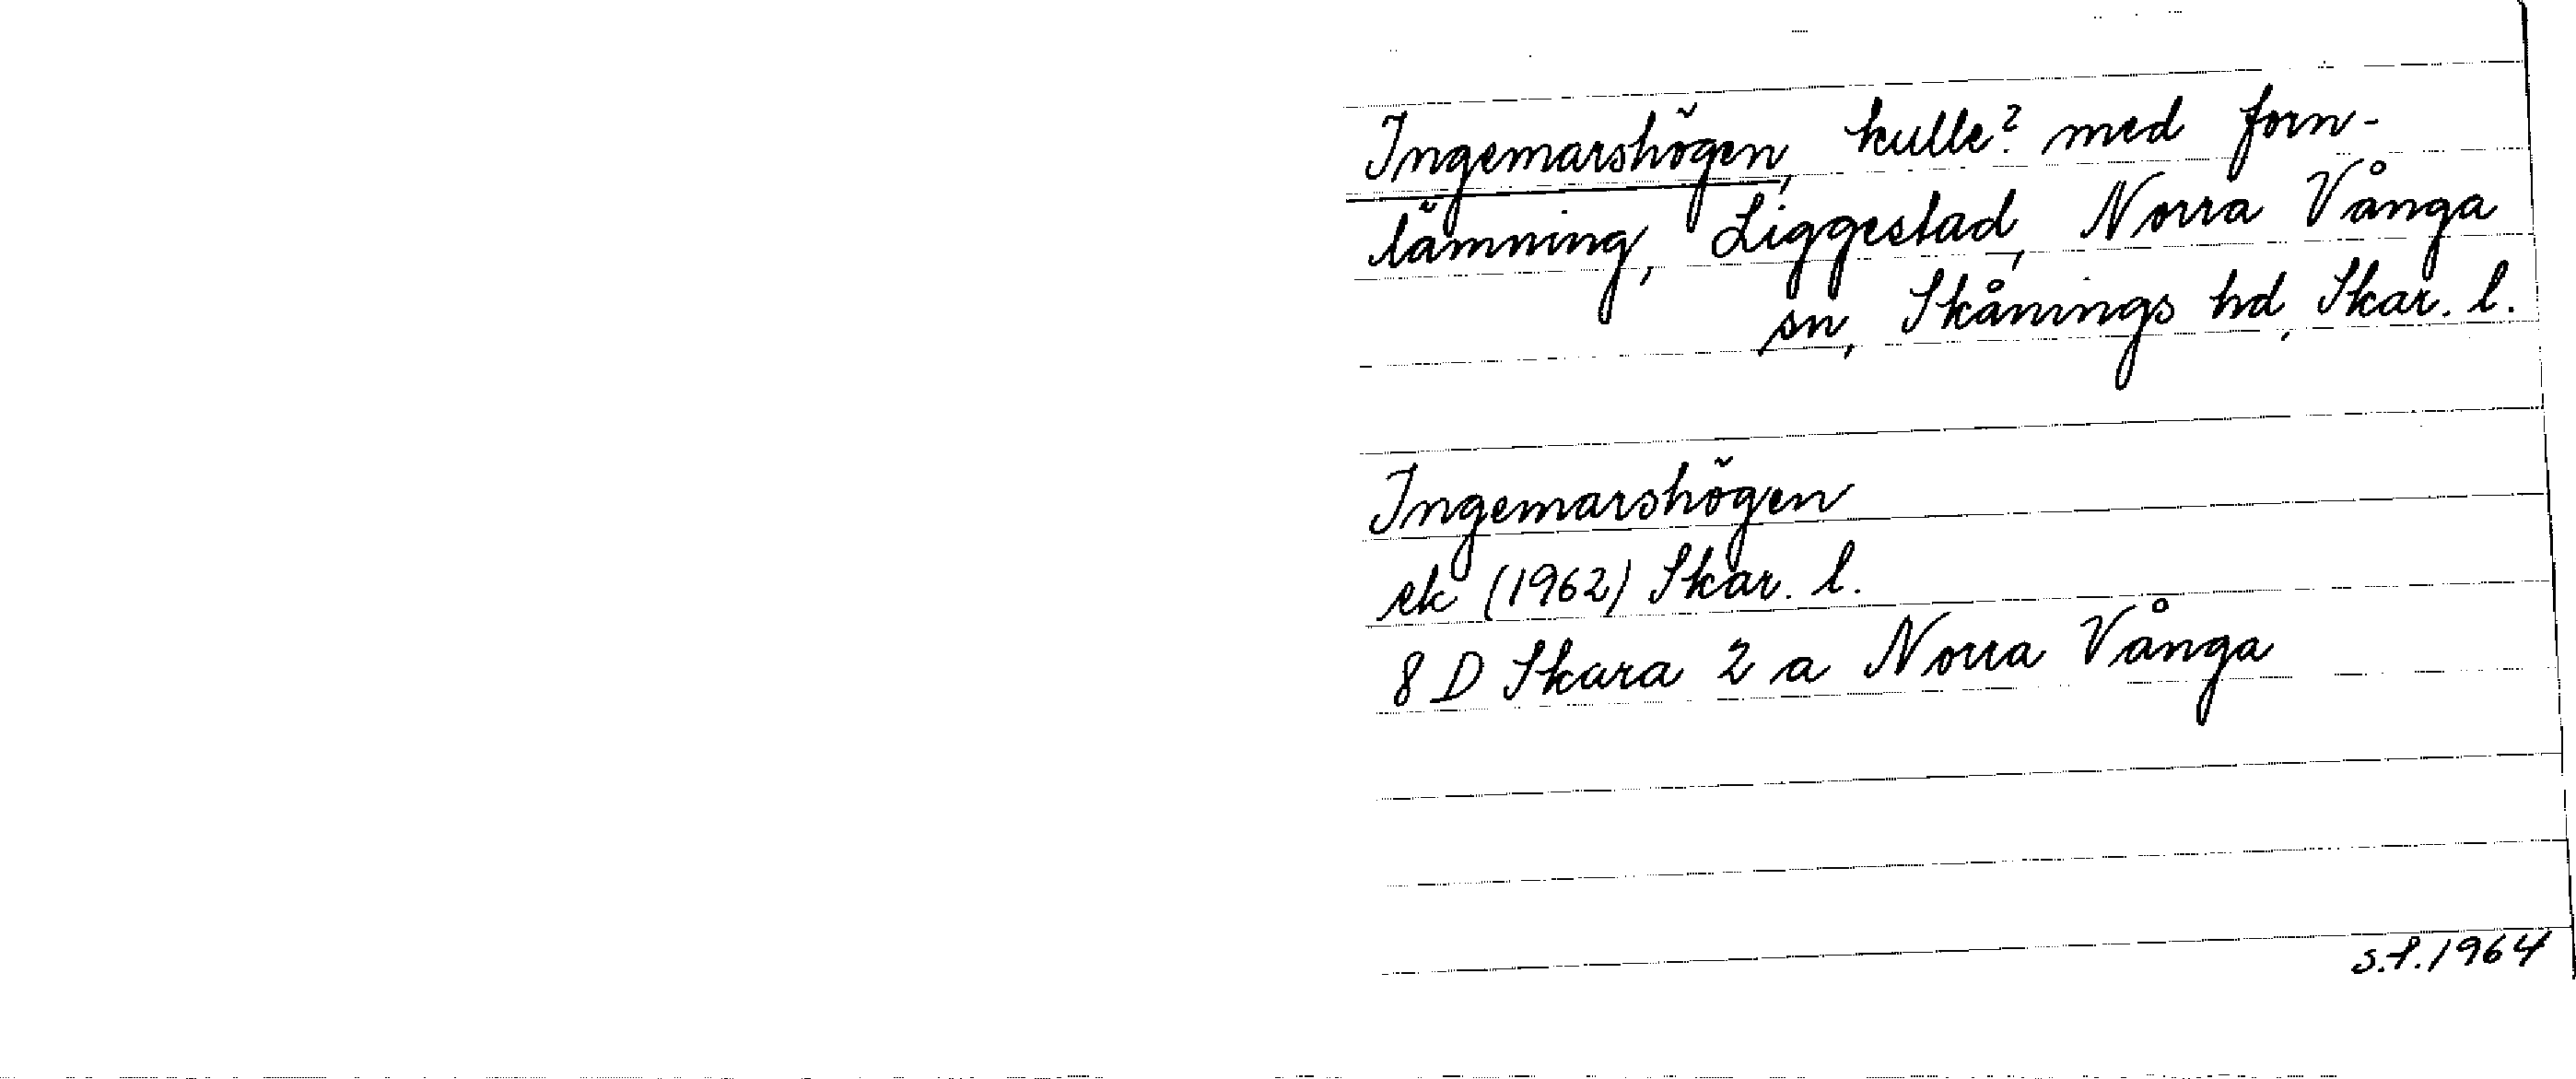 Ingemarshögen, kulle? med forn-
lämning, Liggestad, Norra Vånga
sn, Skånings hd, Skar. l.
Ingemarshögen
ek (1962) Skar. l.
8 D Skara 2 a Norra Vånga
s.f. 1964